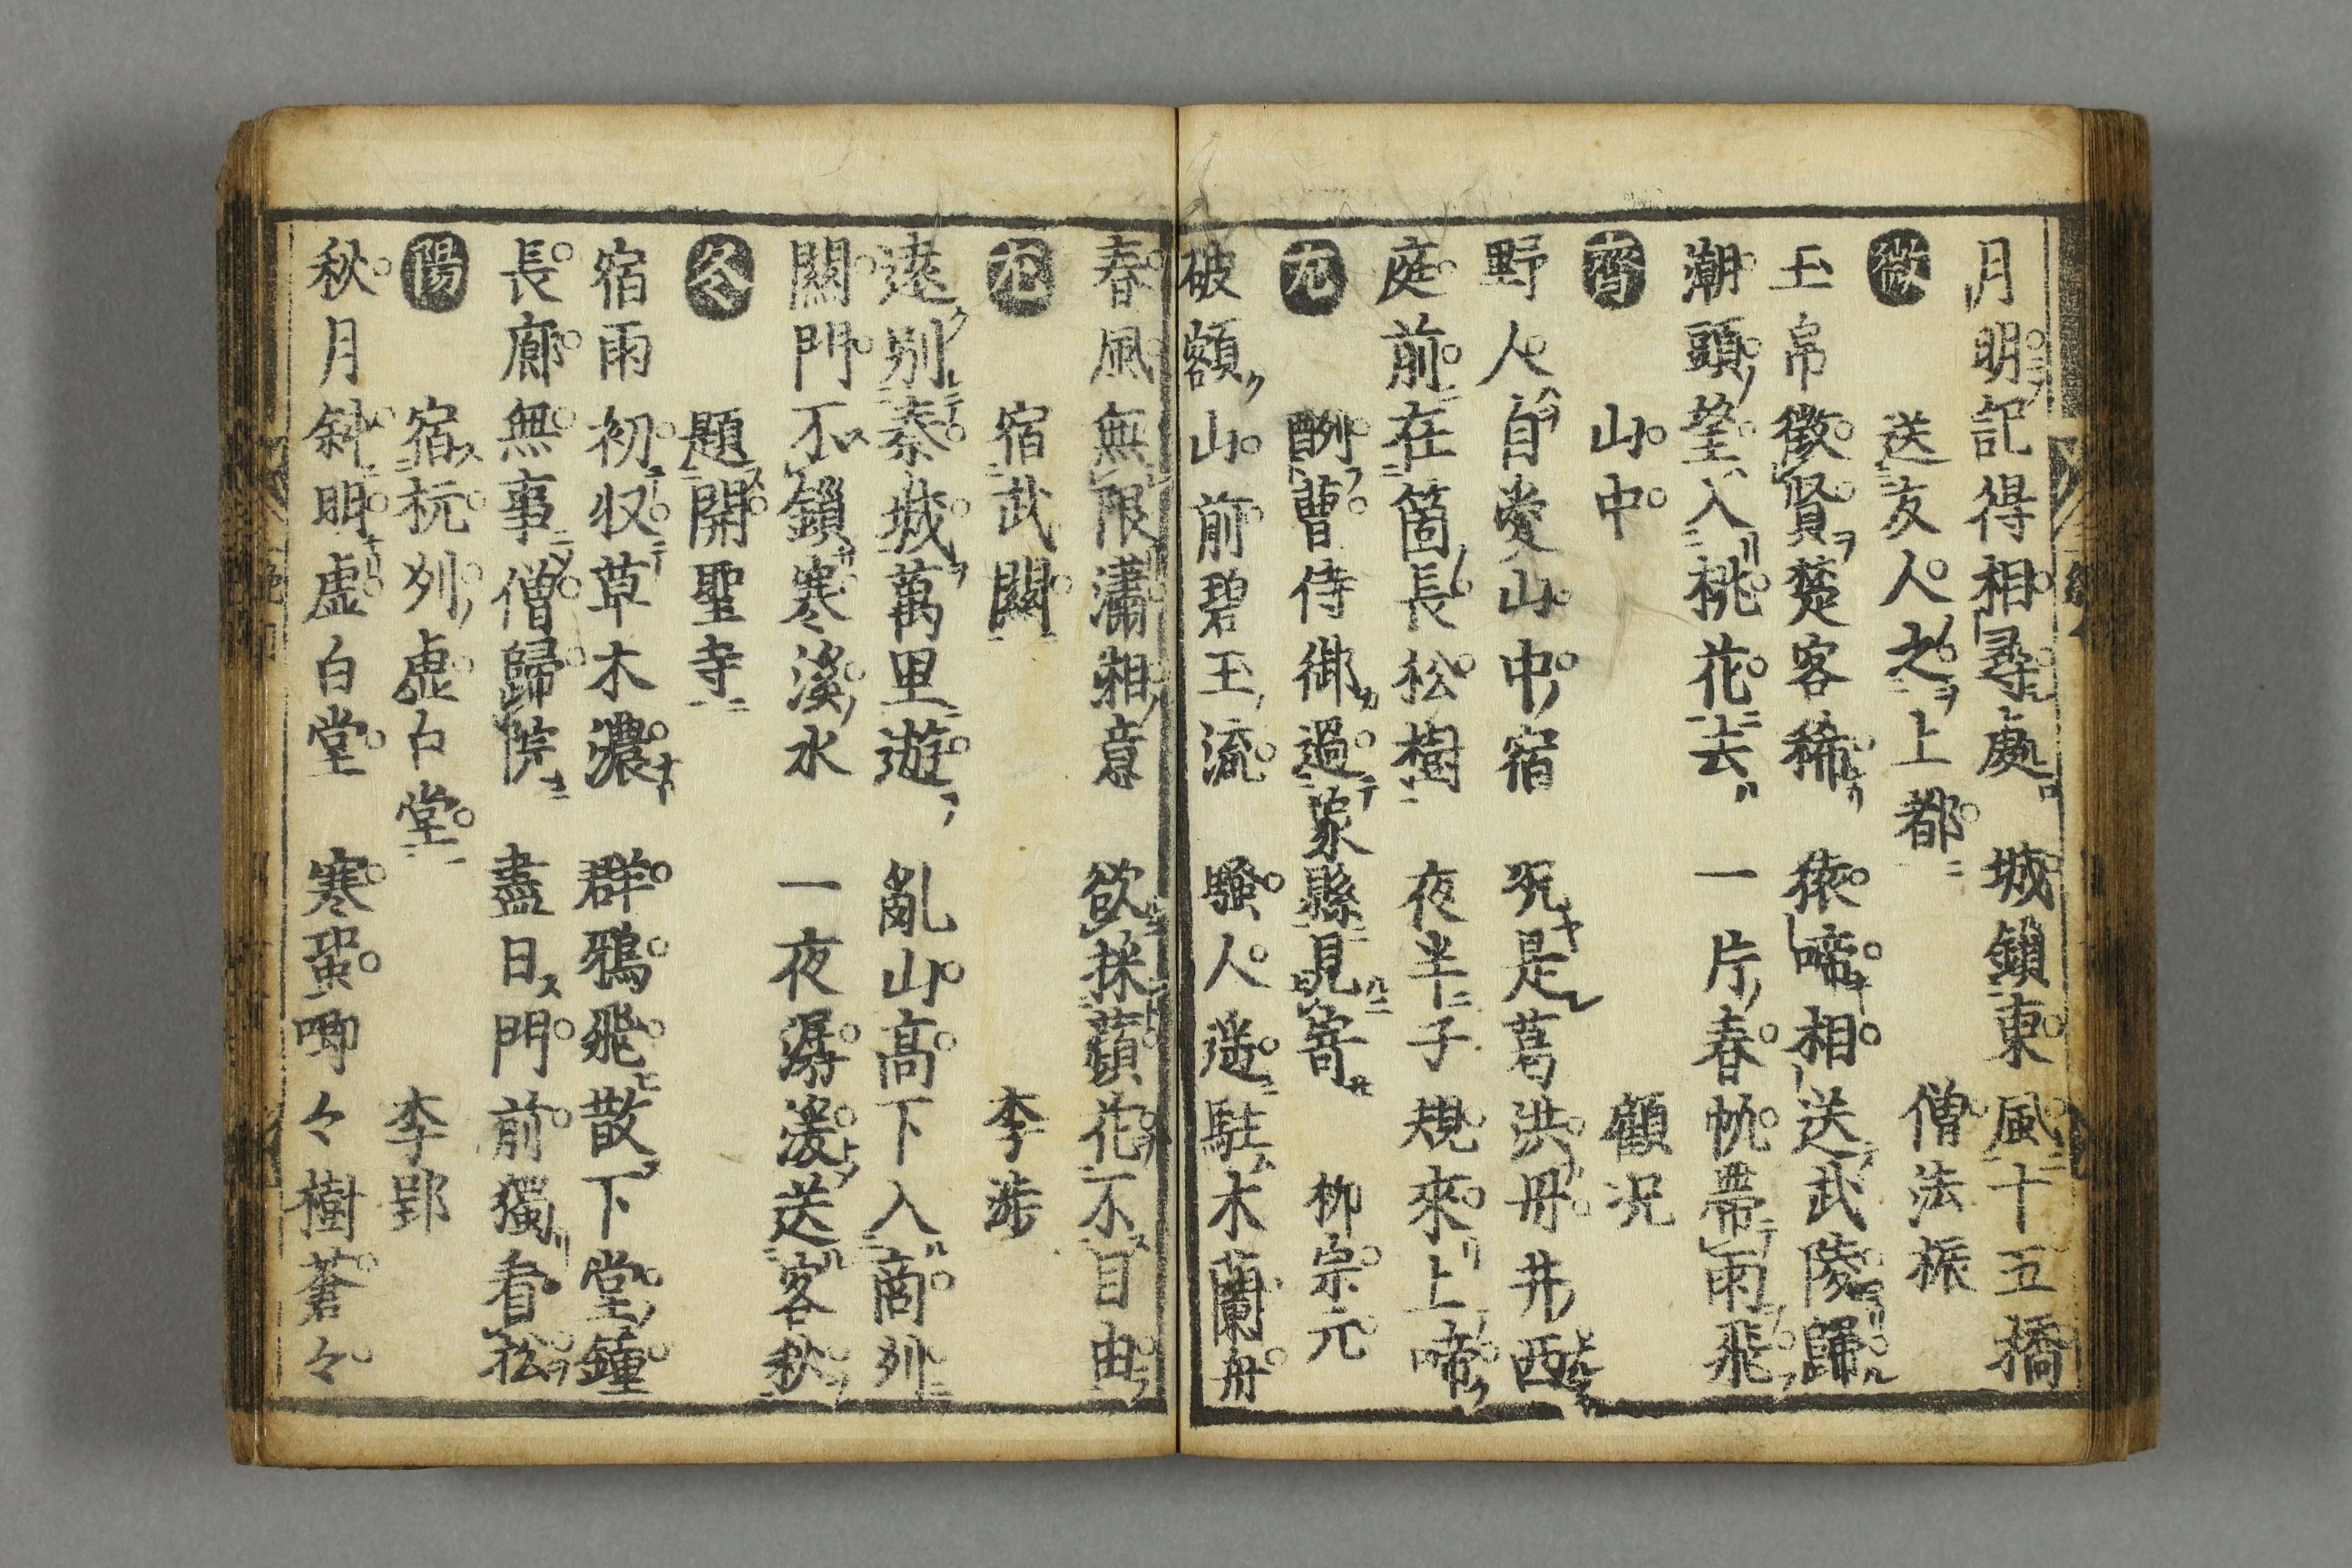 月明記得相尋處 城鎖東風十五橋
微 送友人之上都 僧法振
玉帛徴賢楚客稀 猿啼相送武陵歸
潮頭望入桃花去 一片春帆帶雨飛
齊 山中 顧况
野人自愛山中宿 况是葛洪丹井西
庭前在箇長松樹 夜半子規來上啼
尤 酬曹侍御過象縣見寄 柳宗元
破額山前碧玉流 騷人遥駐木蘭舟
春風無限瀟湘意 欲採蘋花不自由
宿武關 李渉
遠別秦城萬里遊 亂山高下入商州
關門不鎖寒溪水 一夜潺湲送客秋
冬 題開聖寺
宿雨初収草木濃 群鴉飛散下堂鐘
長廊無事僧歸院 盡日門前獨看松
陽 宿杭州虚白堂 李郢
秋月斜明虚白堂 寒蛩唧々樹蒼々